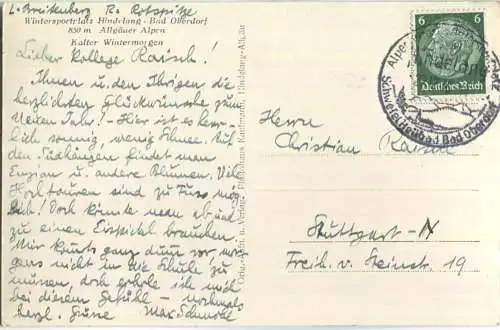 L. Breitenberg R. Rotspitze
Wintersportplatz Hindelang - Bad Oberdorf
850 m Allgäuer Alpen
Kalter Wintermorgen
Lieber Kollege Raisch!
Ihnen u. den Ihrigen die
herzlichsten Glückwünsche zum
Neuen Jahr! - Hier ist es herr-
lich sonnig, wenig Schnee. Auf
den Südhängen findet man
Enzian u. andere Blumen. Viele
Hochtouren sind zu Fuss mög-
lich! Doch könnte man ab und
zu einen Eispickel brauchen.
Mir kommts ganz dumm vor mor-
gens nicht in die Schule zu
müssen, doch erhole ich mich
bei diesem Gefühl - nochmals
herzl. Grüsse Max
Verlag Photohaus Kaufmann, Hindelang-Allgäu
6 6
Deutsches Reich
Schwefelheilbad Bad Oberdorf
Herrn
Christian Raisch
Stuttgart-N
Freih. v. Steinstr. 19